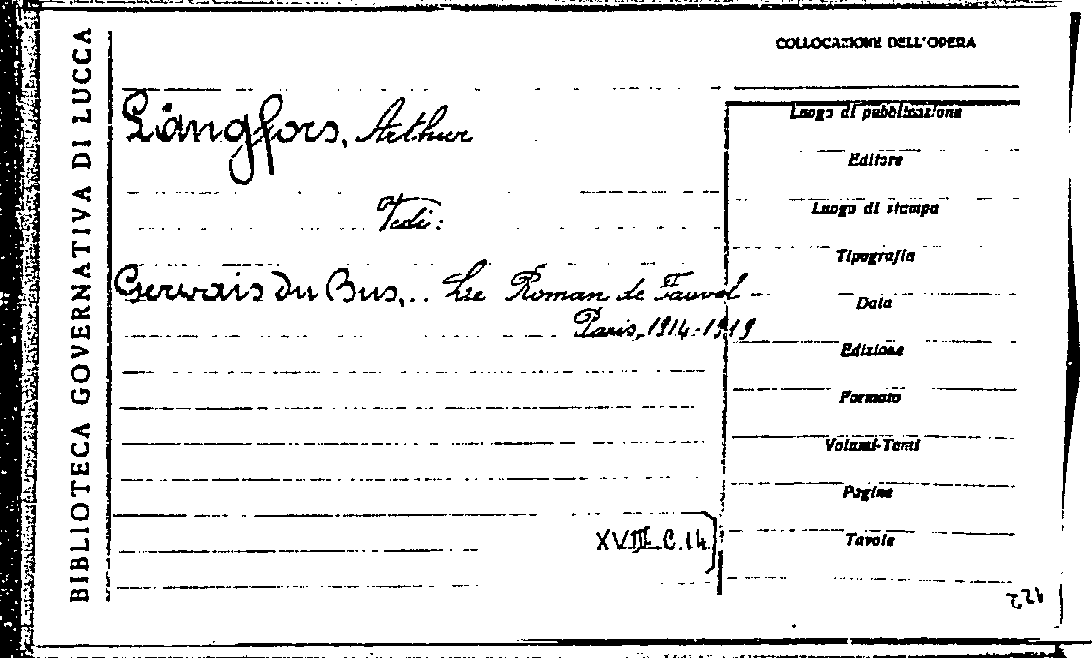 BIBLIOTECA GOVERNATIVA DI LUCCA
COLLOCAZIONE DELL'OPERA
Långfors, Arthur
Vedi:
Gervais du Bus,.. Le Roman de Fauvel
Paris, 1914-1919
XVIII.C.14
Luogo di pubblicazione
Editore
Luogo di stampa
Tipografia
Data
Edizione
Formato
Volumi-Tomi
Pagine
Tavole